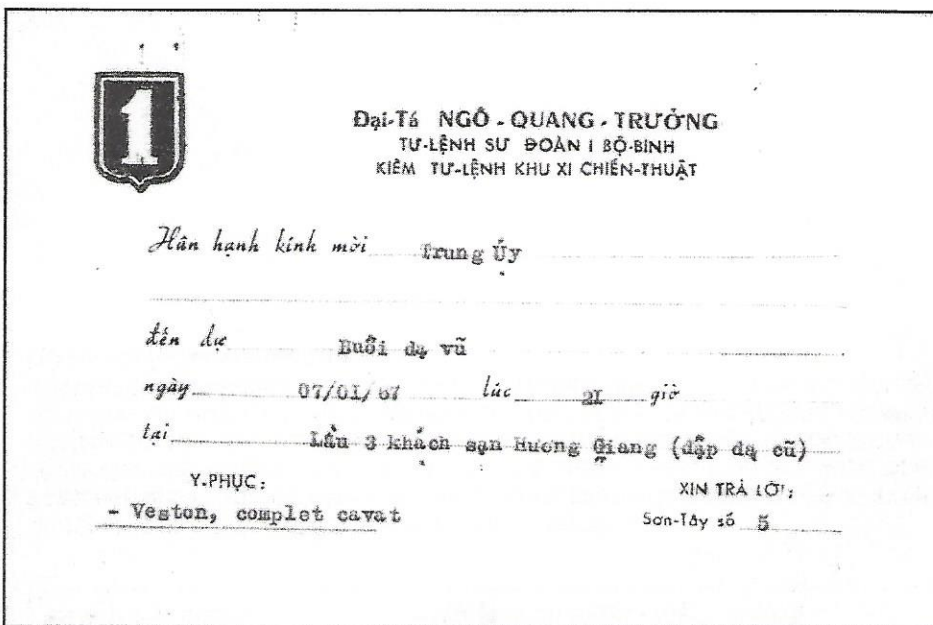 1
Đại-Tá NGÔ - QUANG - TRƯỞNG
TƯ-LỆNH SƯ ĐOÀN I BỘ-BINH
KIÊM TƯ-LỆNH KHU XI CHIẾN-THUẬT
Hân hạnh kính mời Trung Úy
đến dự Buổi dạ vũ
ngày 07/01/67 lúc 21 giờ
tại Lầu 3 khách sạn Hương Giang (đập đạ cũ)
Y-PHỤC: XIN TRẢ LỜI:
- Veston, complet cavat Sơn-Tây số 5